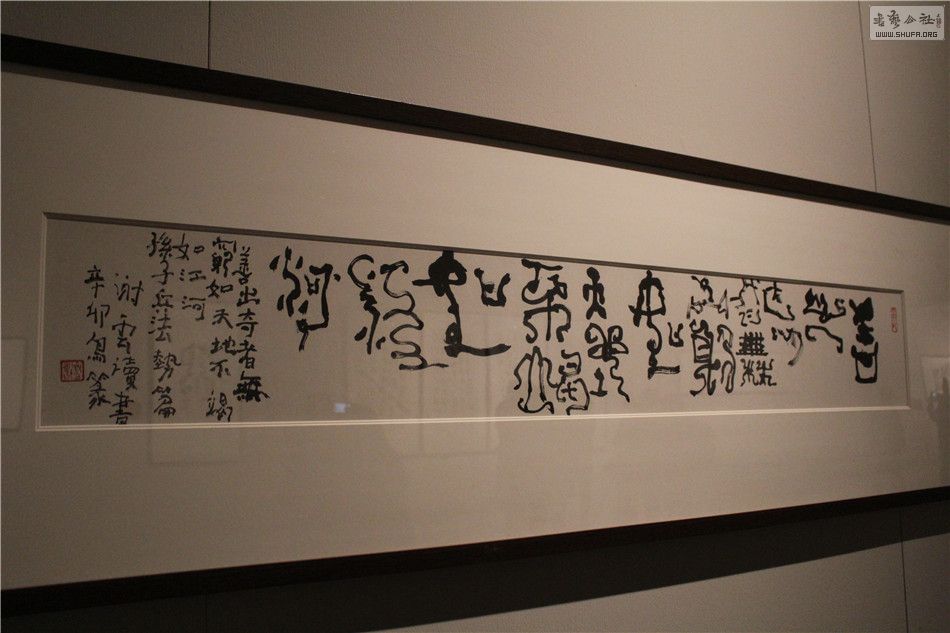 善
出
奇
者無
窮
如
天地
不竭
如
江
河
善出奇者無
窮如天地不竭
如江河
孫子兵法勢篇
謝雲讀書
辛卯寫篆
书艺公社
WWW.SHUFA.ORG